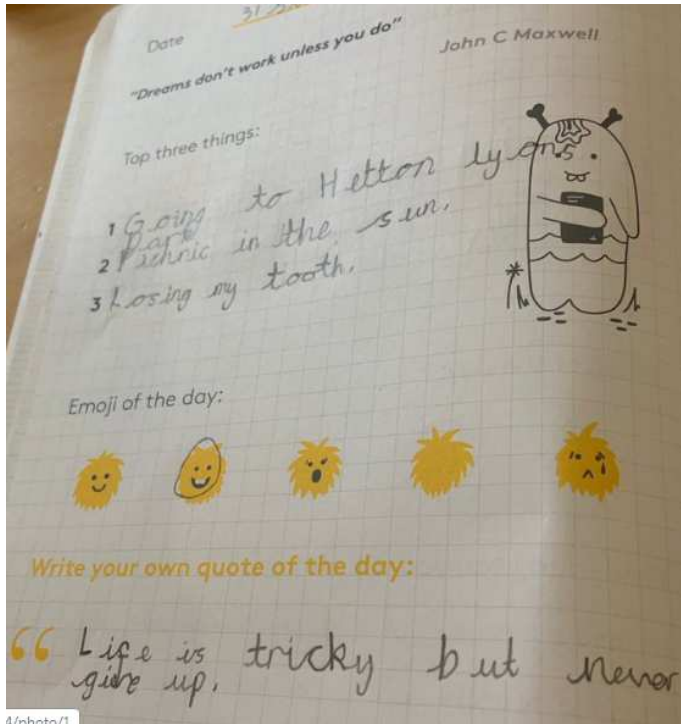 Date
31
"Dreams don't work unless you do"
John C Maxwell
Top three things:
1 Going to Hetton lyons
Park
2 Pichnic in the sun.
3 Losing my tooth.
Emoji of the day:
Write your own quote of the day:
“ Life is tricky but never
give up.
4/photo/1